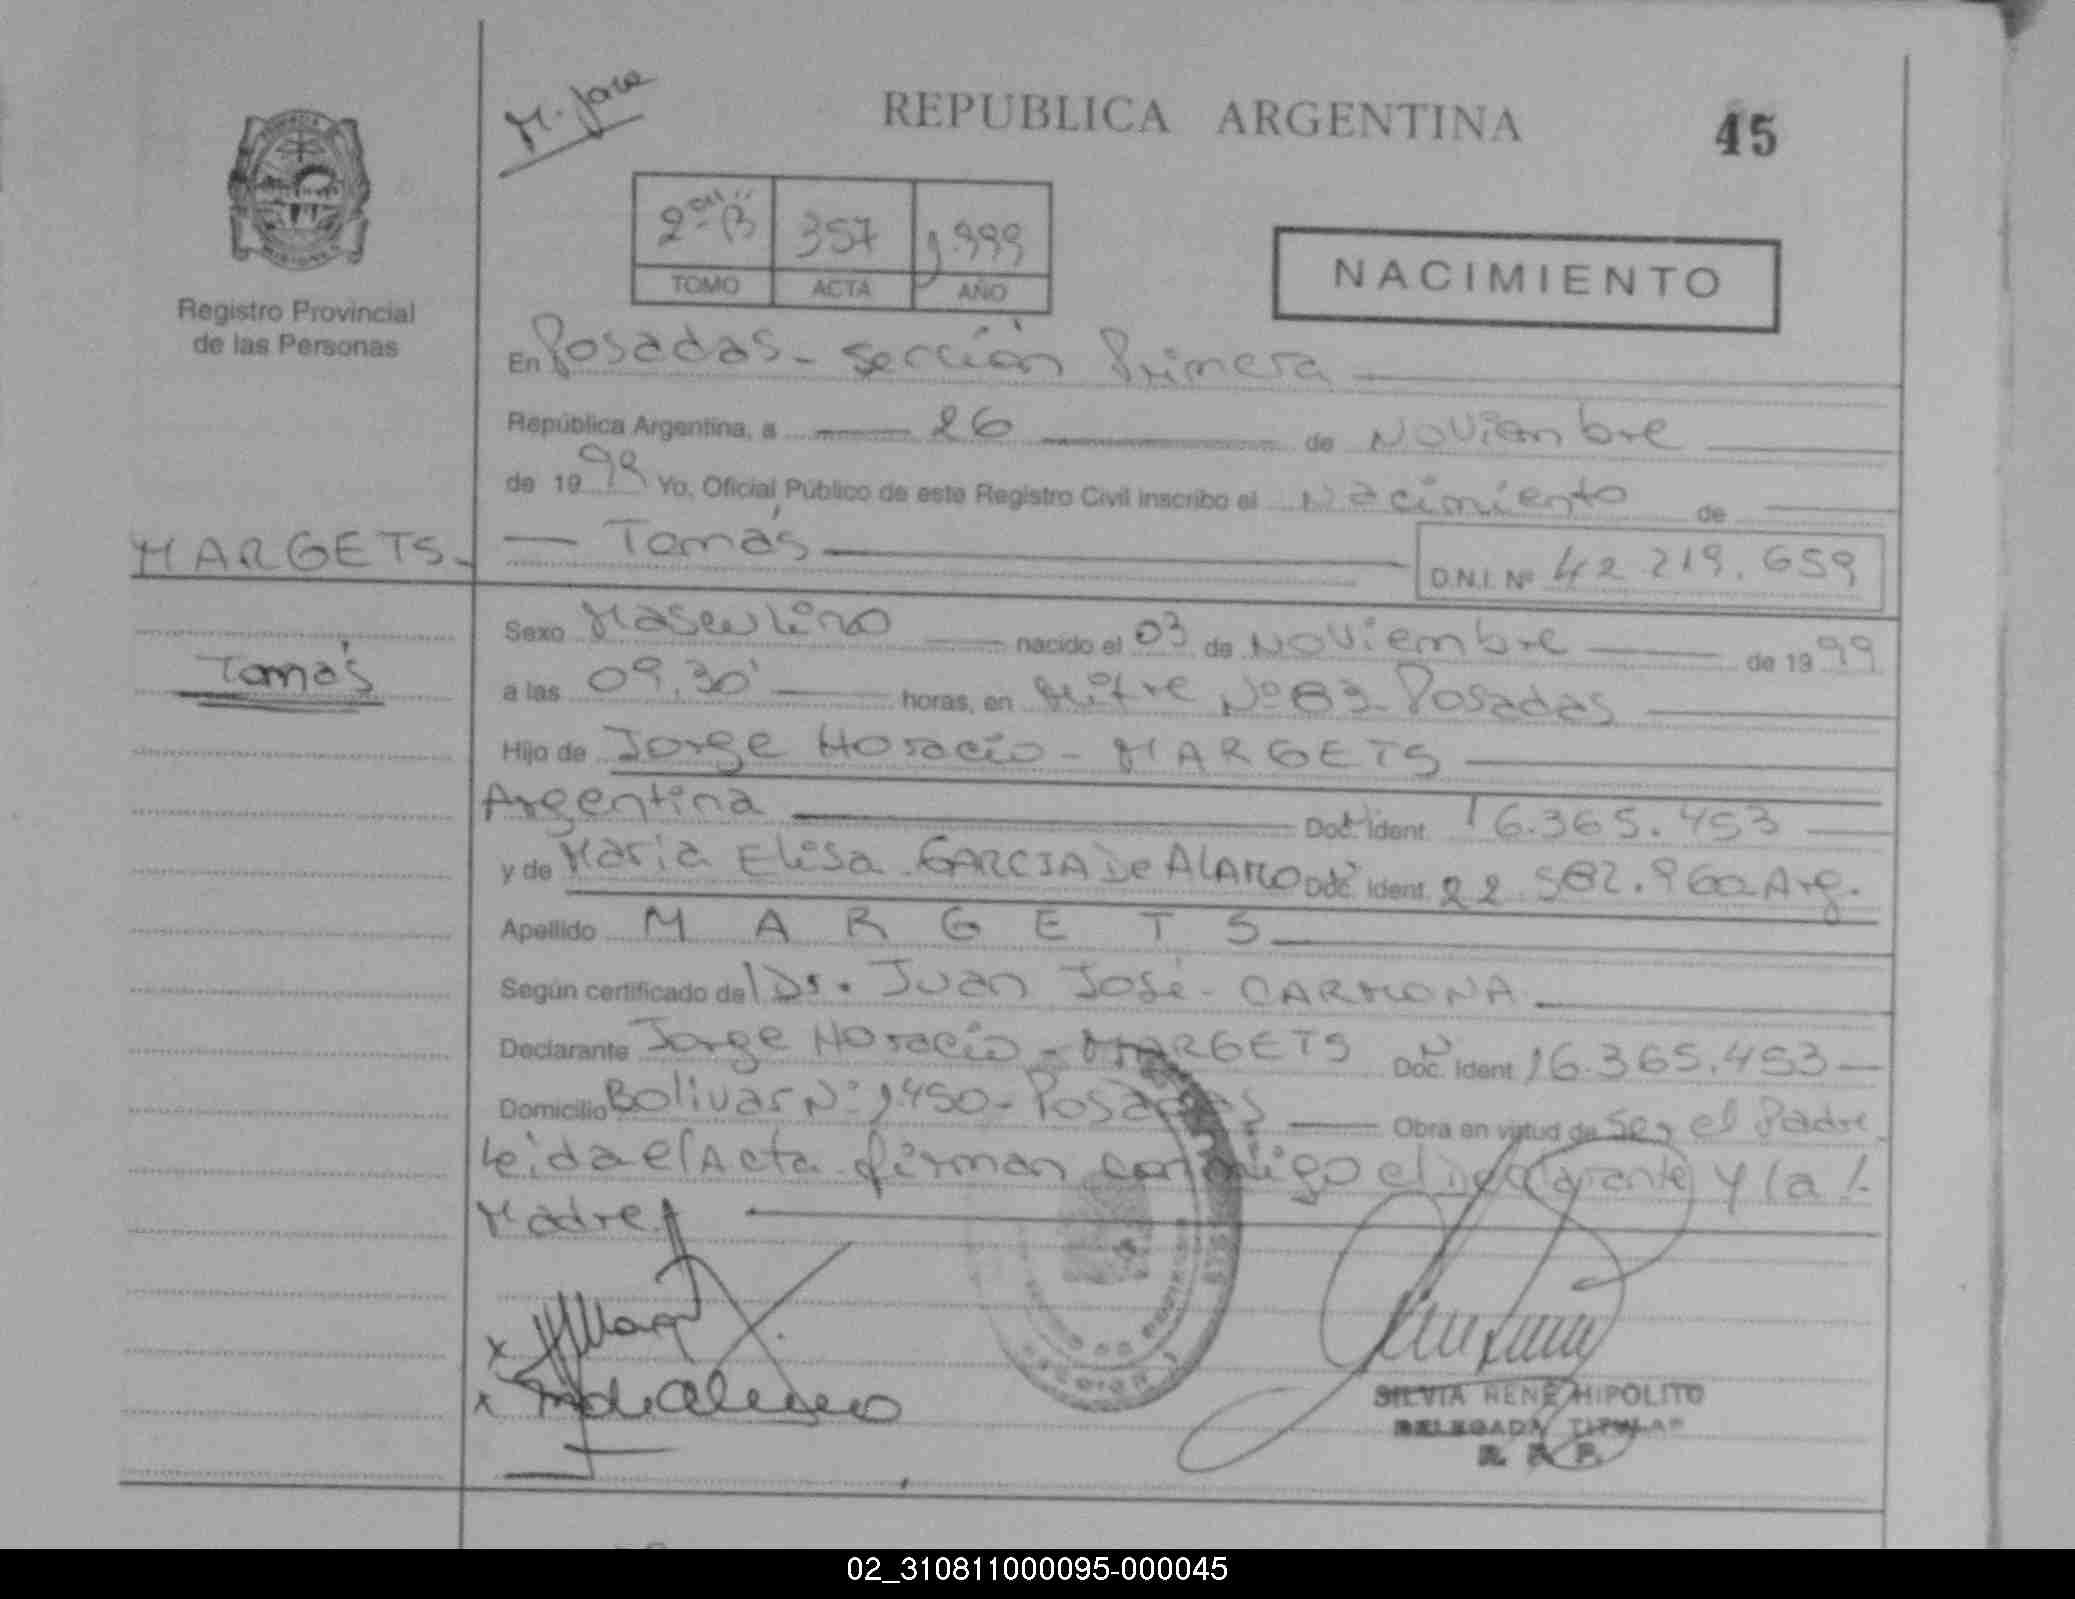 M. Jara
REPUBLICA ARGENTINA
45
2º "B" 357 1.999
TOMO ACTA AÑO
NACIMIENTO
Registro Provincial
de las Personas
En Posadas - sección Primera
República Argentina, a 26 de Noviembre
de 1999 Yo, Oficial Público de este Registro Civil inscribo el Nacimiento de
MARGETS. Tomás D.N.I. Nº 42 219.659
Tomás
Sexo Masculino nacido el 03 de Noviembre de 1999
a las 09.30' horas, en Mitre Nº 83 - Posadas
Hijo de Jorge Horacio - MARGETS
Argentina Doc. Ident. 16.365.453
y de Maria Elisa GARCIA De ALAMO Doc. Ident. 22.582.960 Arg.
Apellido M A R G E T S
Según certificado del Dr. Juan José - CARMONA
Declarante Jorge Horacio - MARGETS Doc. Ident 16.365.453
Domicilio Bolivar Nº 1450 - Posadas Obra en virtud de ser el Padre.
Leida el Acta firman conmigo el Declarante y la /.
Madre.
SILVIA RENE HIPOLITO
DELEGADA TITULAR
R. P. P.
02_310811000095-000045